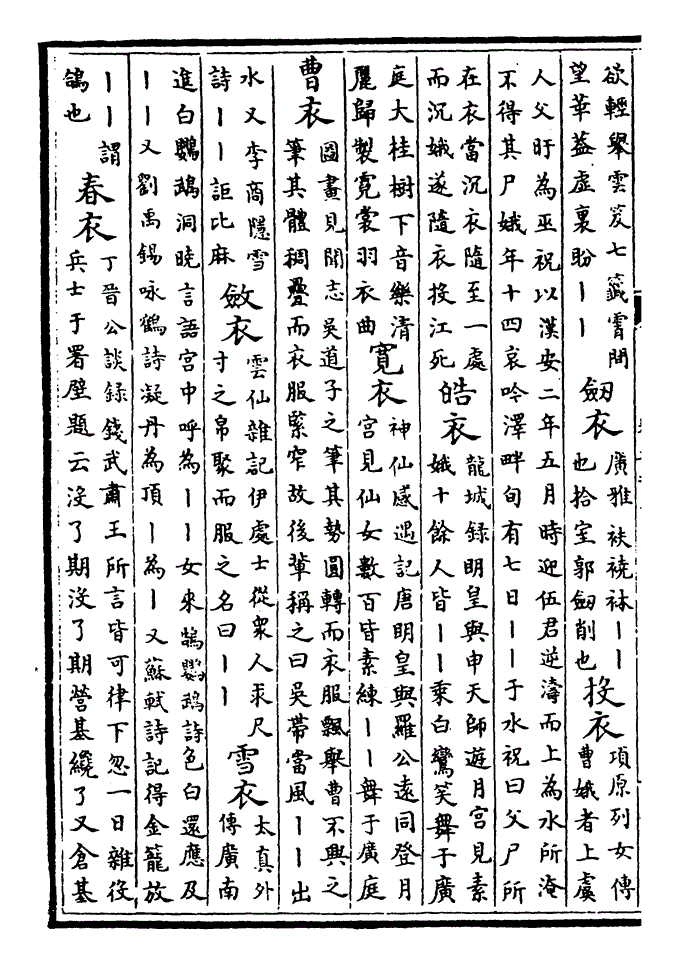 欲輕舉雲笈七籤霄間
望華蓋虛裏盼丨丨
劒衣
廣雅袚襓袜丨丨
也拾室郭劒削也
投衣
項原列女傳
曹娥者上虞
人父盱為巫祝以漢安二年五月時迎伍君逆濤而上為水所淹
不得其尸娥年十四哀吟澤畔旬有七日丨丨于水祝曰父尸所
在衣當沉衣隨至一處
而沉娥遂隨衣投江死
皓衣
龍城錄明皇與申天師遊月宮見素
娥十餘人皆丨丨乘白鸞笑舞于廣
庭大桂樹下音樂清
麗歸製霓裳羽衣曲
寬衣
神仙感遇記唐明皇與羅公遠同登月
宮見仙女數百皆素練丨丨舞于廣庭
曹衣
圖畫見聞志吳道子之筆其勢圓轉而衣服飄舉曹不興之
筆其體稠疊而衣服緊窄故後輩稱之曰吳帶當風丨丨出
水又李商隱雪
詩丨丨詎比麻
斂衣
雲仙雜記伊處士從衆人求尺
寸之帛聚而服之名曰丨丨
雪衣
太真外
傳廣南
進白鸚鵡洞曉言語宮中呼為丨丨女來鵠鸚鵡詩色白還應及
丨丨又劉禹錫咏鶴詩凝丹為頂丨為丨又蘇軾詩記得金籠放
丨丨謂
鴿也
春衣
丁晉公談録錢武肅王所言皆可律下忽一日雜役
兵士于署壁題云沒了期沒了期營基纔了又倉基